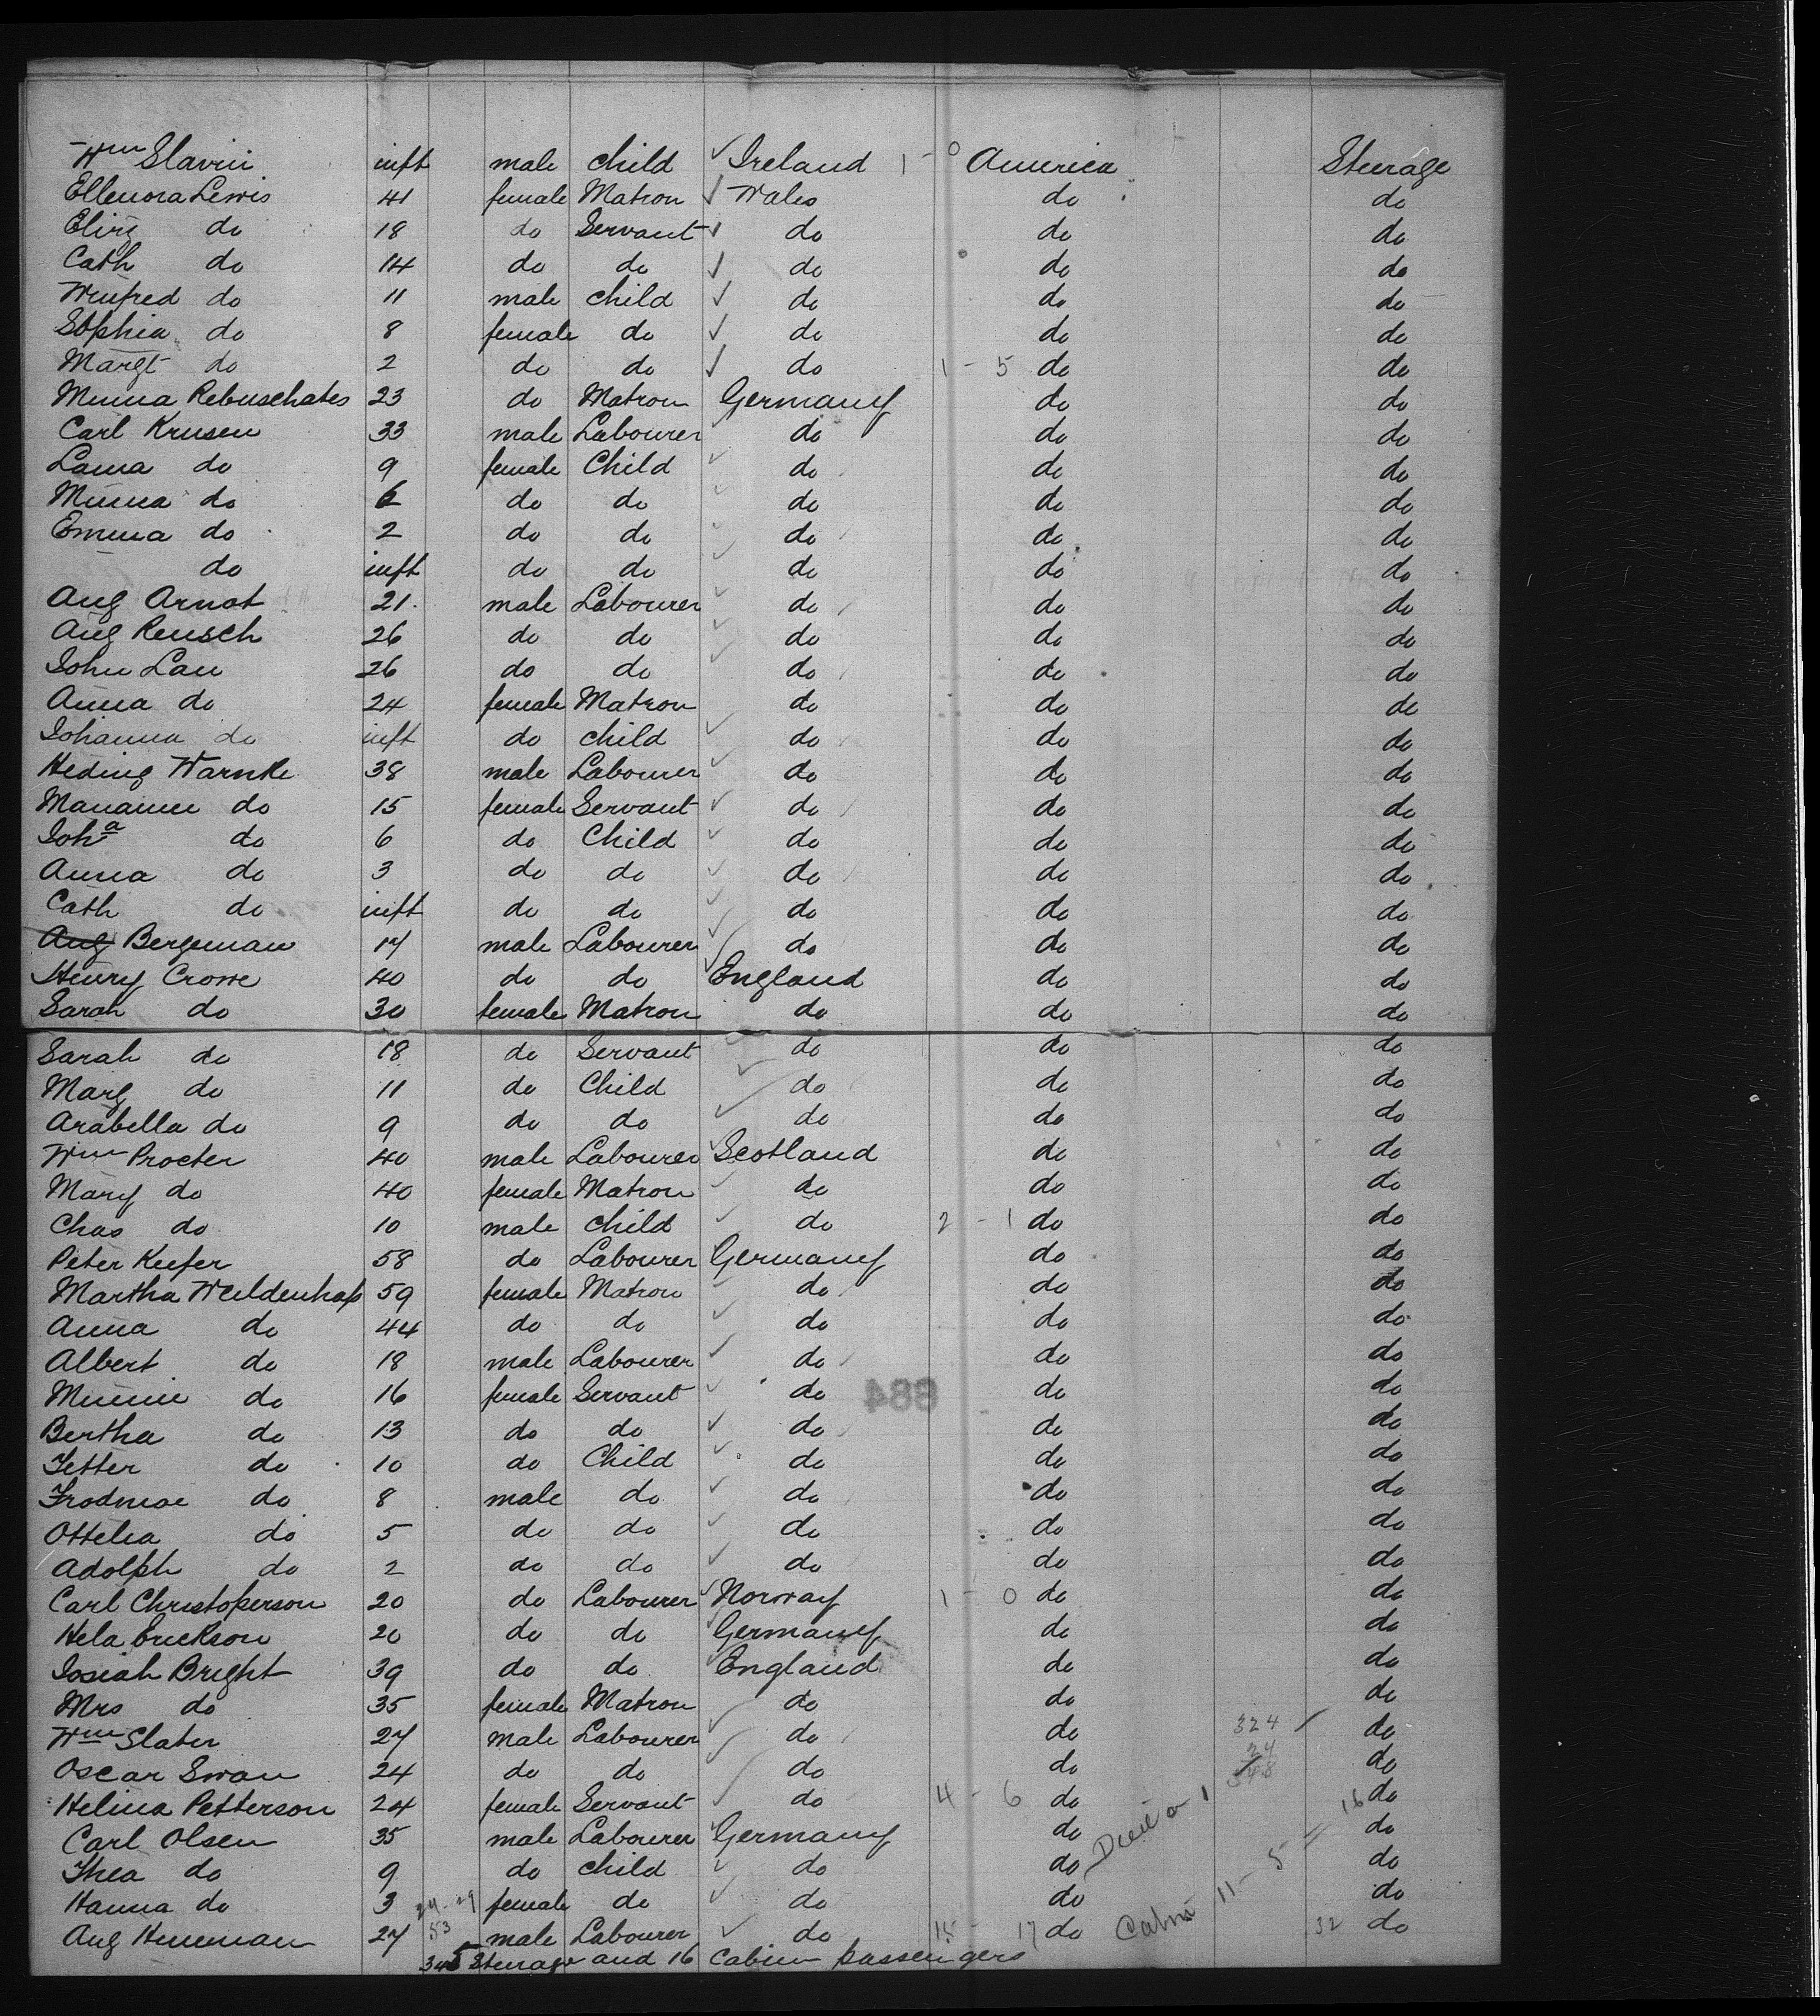 Wm Slavin inft male child Ireland 1 - 0 America Steerage
Ellenora Lewis 41 female Matron Wales do do
Eliz do 18 do Servant do do do
Cath do 14 do do do do do
Winfred do 11 male child do do do
Sophia do 8 female do do do do
Margt do 2 do do do 1 - 5 do do
Minna Rebuschates 23 do Matron Germany do do
Carl Krusen 33 male Labourer do do do
Lama do 9 female Child do do do
Minna do 6 do do do do do
Emma do 2 do do do do do
do inft do do do do do
Aug Arnot 21 male Labourer do do do
Aug Reusch 26 do do do do do
John Lau 26 do do do do do
Anna do 24 female Matron do do do
Johanna do inft do child do do do
Heding Warnke 38 male Labourer do do do
Mananne do 15 female Servant do do do
Joha do 6 do Child do do do
Anna do 3 do do do do do
Cath do inft do do do do do
Aug Bergeman 17 male Labourer do do do
Henry Crowe 40 do do England do do
Sarah do 30 female Matron do do do
Sarah do 18 do Servant do do do
Marg do 11 do Child do do do
Arabella do 9 do do do do do
Wm Procter 40 male Labourer Scotland do do
Mary do 40 female Matron do do do
Chas do 10 male child do 2 - 1 do do
Peter Keefer 58 do Labourer Germany do do
Martha Weildenhap 59 female Matron do do do
Anna do 44 do do do do do
Albert do 18 male Labourer do do do
Minnie do 16 female Servant do do do
Bertha do 13 do do do do do
Jetter do 10 do Child do do do
Frodmoe do 8 male do do do do
Ottelia do 5 do do do do do
Adolph do 2 do do do do do
Carl Christoperson 20 do Labourer Norway 1 - 0 do do
Hela Erickson 20 do do Germany do do
Josiah Bright 39 do do England do do
Mrs do 35 female Matron do do do
Wm Slater 27 male Labourer do do 324 do
Oscar Swan 24 do do do do 24 348 do
Helina Petterson 24 female Servant do 4 - 6 do 16 do
Carl Olsen 35 male Labourer Germany do do
Thea do 9 do child do do do
Hanna do 3 female do do do do
Aug Hinneman 27 53 male Labourer do 15 - 17 do Cabin 11 - 5 = 32 do
345 Steerage and 16 Cabin passengers